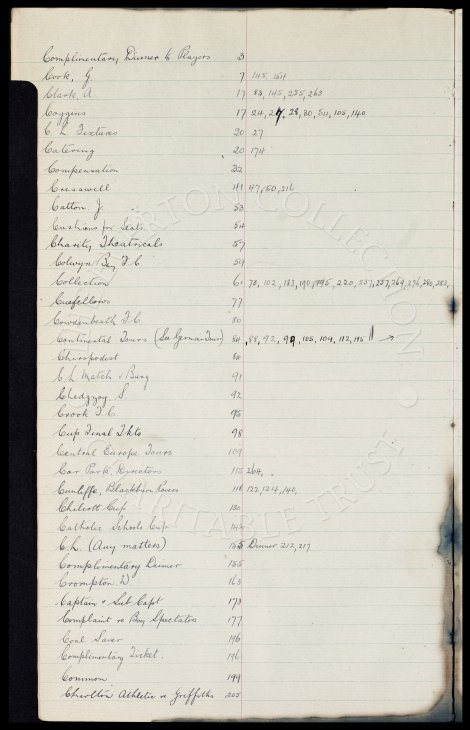 Complimentary Dinner to Players 3
Cook, G. 7 145, 164
Clark, A 17 83, 145, 255, 263
Coggins 17 24, 27, 28, 30, 54, 105, 140
C. L. Fixtures 20 27
Catering 20 174
Compensation 32
Cresswell 41 47, 50, 216
Catton J. 53
Cushions for Seats 54
Charity Theatricals 57
Colwyn Bay F.C. 59
Collection 61 73, 102, 183, 190, 195, 220, 237, 257, 269, 276, 280, 283,
77
Cowdenbeath F.C. 80
Continental Tours (See German Tour) 84 88, 92, 99, 105, 109, 112, 115 →
Chiropodist
C.L. Match v Bury 91
Chedgzoy S. 92
Crook F.C. 95
Cup Final Tkts 98
Central Europe Tours 109
Car Park Directors 115 264,
Cunliffe, Blackburn Rovers 118 122, 124, 140,
Chilcott Cup 130
Catholic Schools Cup 142
C.L. (Any matters) 155 Dinner 212, 217
Complimentary Dinner 155
Crompton. W 163
Captain & Sub Capt 173
Complaint re Boy Spectators 177
Coal Saver 196
Complimentary Ticket. 196
Common 199
Charlton Athletic re Griffiths 205
EVERTON COLLECTION
CHARITABLE TRUST